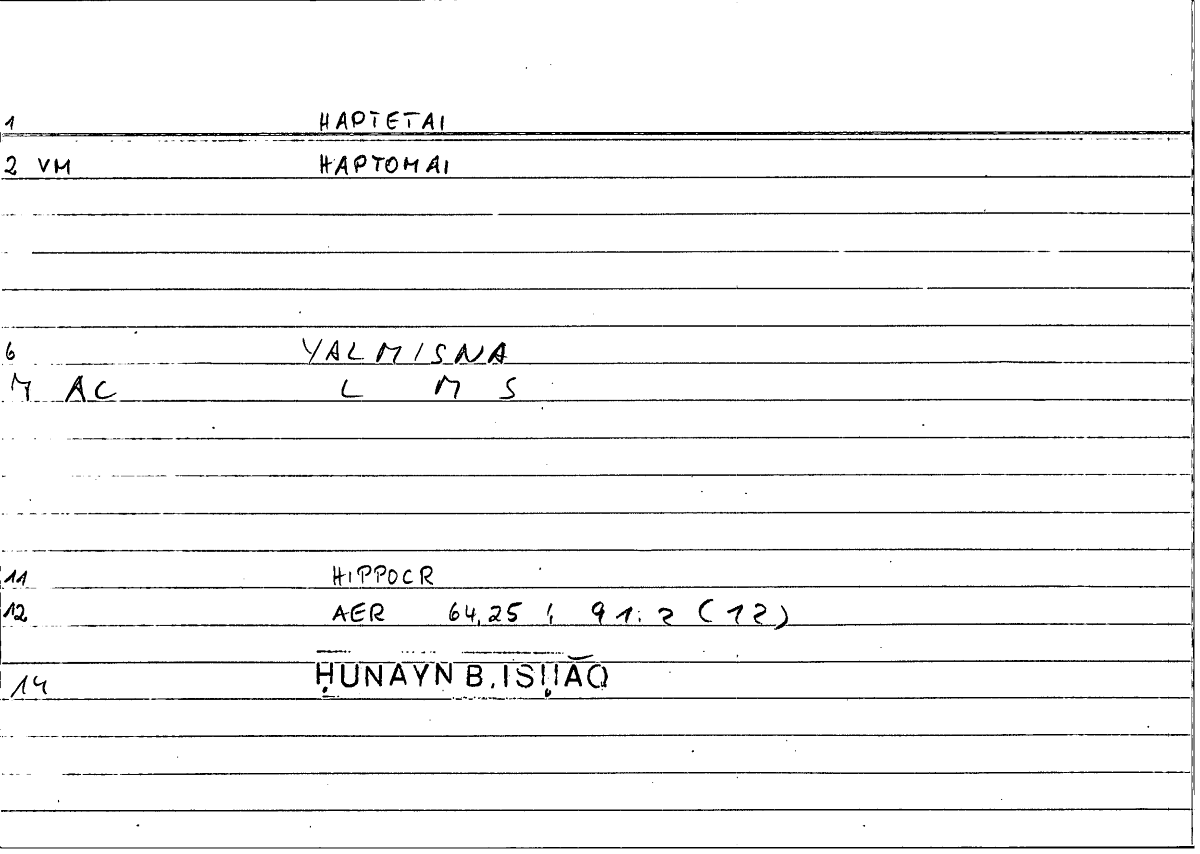 1 HAPTETAI
2 VM HAPTOMAI
6 YALMISNA
7 AC L M S
11 HIPPOCR
12 AER 64,25 ; 91:2 (12)
14 ḤUNAYN B. ISḤĀQ